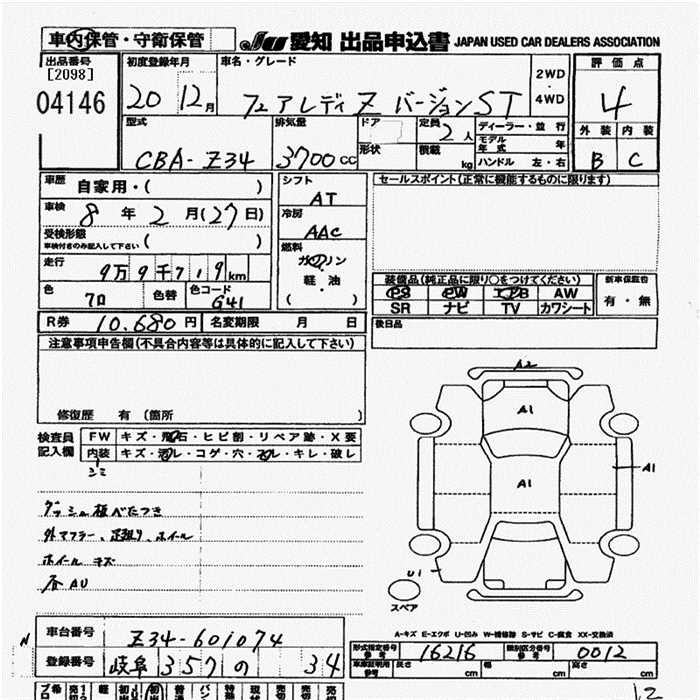 車内保管・守衛保管 JU 愛知 出品申込書 JAPAN USED CAR DEALERS ASSOCIATION
出品番号 [2098] 04146
初度登録年月 20 12月
車名・グレード フェアレディZ バージョンST
2WD・4WD
評価点 4
外装 B 内装 C
型式 CBA-Z34
排気量 3700cc
ドア 形状
定員 2人
積載 kg
ディーラー・並行
モデル年式 年
ハンドル 左・右
車歴 自家用・( )
車検 8年2月(27日)
受検形態 車検付きのみ記入して下さい ( )
走行 9万9千719km
色 クロ 色替 色コード G41
シフト AT
冷房 AAC
燃料 ガソリン・軽・油 ( )
セールスポイント(正常に機能するものに限ります)
装備品(純正品に限り○をつけてください)
PS PW エアB AW
SR ナビ TV カワシート
新車保証書 有・無
後日品
R券 10,680円 名変期限 月 日
注意事項申告欄(不具合内容等は具体的に記入して下さい)
修復歴 有 (箇所 )
検査員記入欄
FW キズ・飛石・ヒビ割・リペア跡・X要
内装 キズ・汚レ・コゲ・穴・スレ・キレ・破レ
シミ
ダッシュ板べたつき
外マフラー、足廻り、ホイール
ホイールキズ
AU
A2
A1
A1
A1
U1
スペア
A-キズ E-エクボ U-凹み W-補修跡 S-サビ C-腐食 XX-交換済
車台番号 Z34-601074
登録番号 岐阜 357 の 34
形式指定番号 参考 16216 類別区分番号 参考 0012
車庫証明用 参考 長さ cm 幅 cm 高さ cm